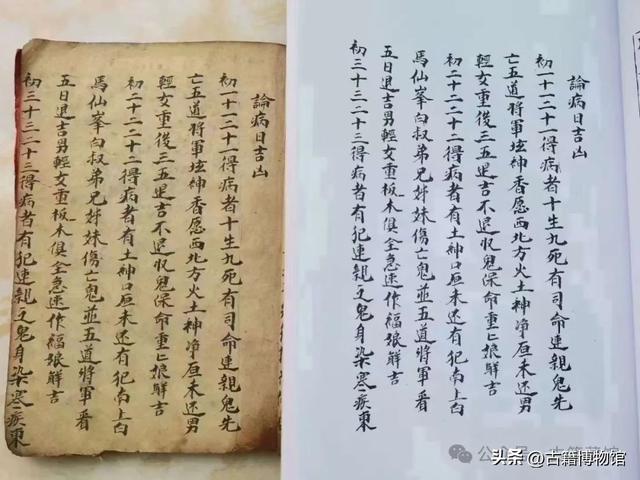 論病日吉凶
初一十一二十一得病者十生九死有司命連親鬼先
亡五道將軍坟神香愿西北方火土神净原未还男
輕女重後三五退吉不退収魂保命重亡禳觧吉
初二十二二十二得病者有土神口原未还有犯南上白
馬仙峯白叔弟兄姊妹傷亡鬼並五道將軍看
五日退吉男輕女重板木俱全急速作福禳觧吉
初三十三二十三得病者有犯連親之鬼身染寒疾東
論病日吉凶
初一十一二十一得病者十生九死有司命連親鬼先
亡五道將軍坟神香愿西北方火土神净原未还男
輕女重後三五退吉不退収魂保命重亡禳觧吉
初二十二二十二得病者有土神口原未还有犯南上白
馬仙峯白叔弟兄姊妹傷亡鬼並五道將軍看
五日退吉男輕女重板木俱全急速作福禳觧吉
初三十三二十三得病者有犯連親之鬼身染寒疾東
公众号
头条 @古籍博物馆